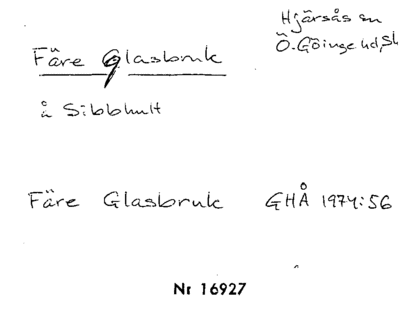 Hjärsås sn
Ö. Göinge hd, Sk
Färe Glasbruk
å Sibbhult
Färe Glasbruk GHÅ 1974:56
Nr 16927